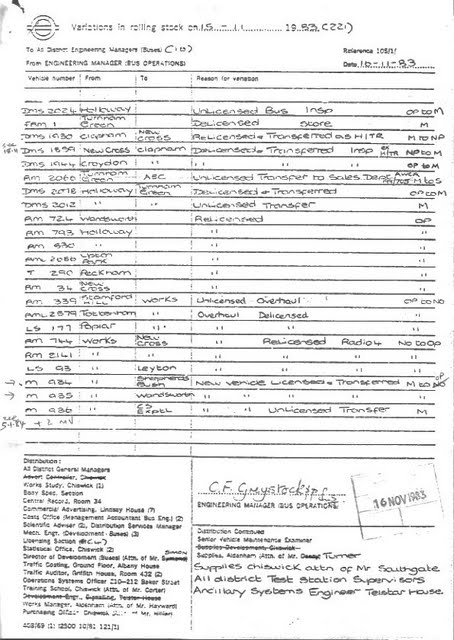 Variations in rolling stock on 15 - 11 1983 (221)
To All District Engineering Managers (Buses) Reference 105/1/
From ENGINEERING MANAGER (BUS OPERATIONS) Date 16-11-83
Vehicle number From To Reason for variation
DMS 2024 Holloway Unlicensed Bus Insp OP to M
FRM 1 Turnham Green Delicensed Store M
DMS 1830 Clapham New Cross Relicensed & Transferred as HITR M to NO
DMS 1859 New Cross Clapham Delicensed & Transferred Insp HITR NO to M
DMS 1944 Croydon " " " " OP to M
RM 2060 Turnham Green AEC Unlicensed Transfer to Sales Dept M to S
DMS 2018 Holloway Turnham Green Delicensed & Transferred OP to M
DMS 2012 " " Unlicensed Transfer M
RM 724 Wandsworth Relicensed OP
RM 793 Holloway " "
RM 830 " " "
RML 2686 Upton Park " "
T 290 Peckham " "
RM 34 New Cross " "
RM 339 Stamford Hill Works Unlicensed Overhaul OP to NO
RML 2579 Tottenham " Overhaul Delicensed "
LS 177 Poplar " " " "
RM 744 Works New Cross " Relicensed Radio4 NO to OP
RM 2141 " " " " "
LS 93 " Leyton " " "
M 934 " Shepherds Bush New Vehicle Licensed & Transferred M to NO OP
M 935 " Wandsworth " " " " "
M 936 " CS Exptl " " Unlicensed Transfer M
+ 2 MV
Distribution:
All District General Managers
Advert Controller, Chiswick
Works Study, Chiswick (1)
Body Spec. Section
Central Record, Room 34
Commercial Advertising, Lindsey House (7)
Costs Office (Management Accountant Bus Eng.) (2)
Scientific Adviser (2), Distribution Services Manager
Mech. Engr. (Development - Buses) (3)
Licensing Section
Statistical Office, Chiswick (2)
Director of Development (Buses) (Attn. of Mr.
Traffic Costing, Ground Floor, Albany House
Traffic Auditor, Griffith House, Room 432 (2)
Operations Systems Officer 210-212 Baker Street
Training School, Chiswick (Attn. of Mr. Carter)
Development Engr., Signalling, Telstar House
Works Manager, Aldenham (Attn. of Mr. Hayward)
Purchasing Officer, Chiswick
408/69 (1) (2500 10/81 121/1)
C.F. Greystock
ENGINEERING MANAGER (BUS OPERATIONS)
16 NOV 1983
Distribution Continued
Senior Vehicle Maintenance Examiner
Supplies Development, Chiswick
Supplies, Aldenham (Attn. of Mr. Turner
Supplies Chiswick attn of Mr Southgate
All district Test Station Supervisors
Ancillary Systems Engineer Telstar House